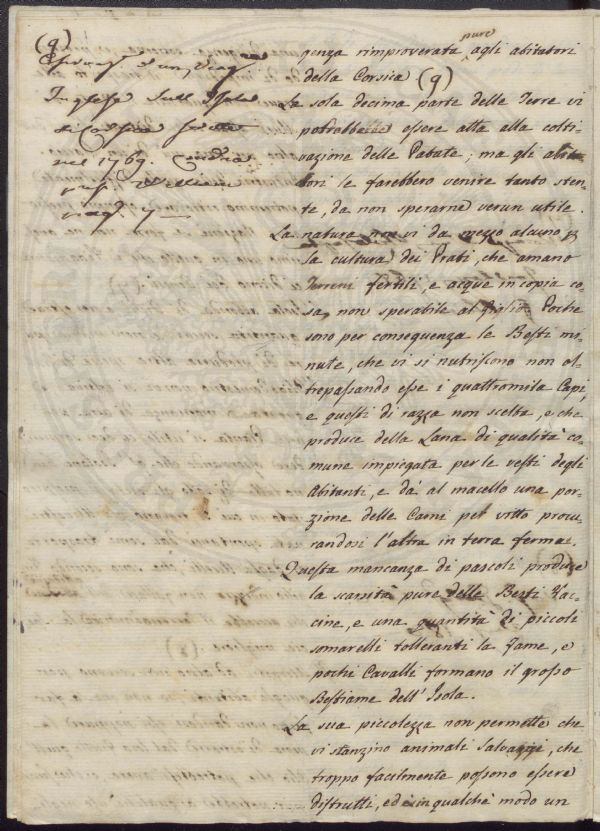 (q)
Inglese sull'Isola
di Corsica
nel 1769.
pure
genza rimproverata agli abitatori
della Corsica (q)
La sola decima parte delle Terre vi
potrebbe essere atta alla colti-
vazione delle Patate; ma gli abita-
tori le farebbero venire tanto sten-
te, da non sperarne verun utile.
La natura non vi da mezzo alcuno p
la cultura dei Prati, che amano
Terreni fertili, e acque in copia co-
sa, non sperabile al Giglio. Poche
sono per conseguenza le Besti mi-
nute, che vi si nutriscono non ol-
trepassando esse i quattromila Capi,
e questi di razza non scelta, e che
produce della Lana di qualità co-
mune impiegata per le vesti degli
Abitanti, e dà al macello una por-
zione delle Carni pel vitto procu-
randosi l'altra in terra ferma.
Questa mancanza di pascoli produce
la scarsità pure delle Besti Vac-
cine, e una quantità di piccoli
somarelli tolleranti la fame, e
pochi Cavalli formano il grosso
Bestiame dell'Isola.
La sua piccolezza non permette che
vi stanzino animali salvaggi, che
troppo facilmente possono essere
distrutti, ed è in qualche modo un